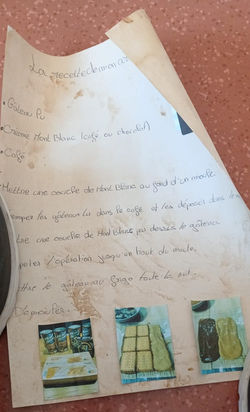 La recette de mon a
• Gâteau Lu
• Crème Mont Blanc (café ou chocolat)
• Café
Mettre une couche de Mont Blanc au fond d'un moule
tremper les gâteaux Lu dans le café et les déposer dans le
une couche de Mont Blanc par dessus le gâteau
l'opération jusqu'en haut du moule.
le gâteau au frigo toute la nuit.
Dégustez